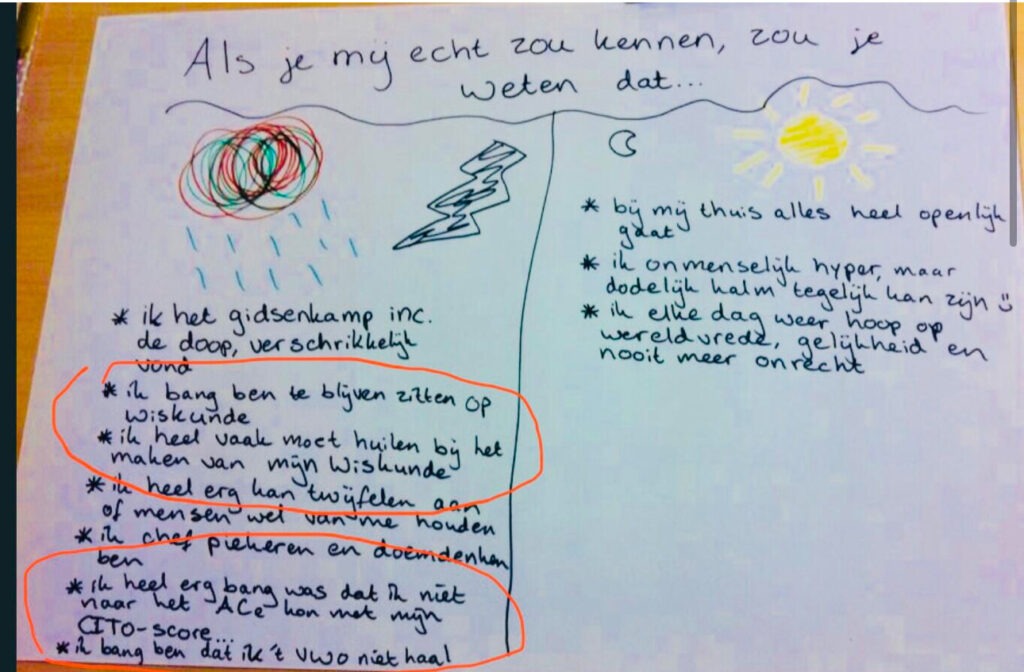 Als je mij echt zou kennen, zou je
weten dat...
* ik het gidsenkamp inc.
de doop, verschrikkelijk
vond
* ik bang ben te blijven zitten op
wiskunde
* ik heel vaak moet huilen bij het
maken van mijn wiskunde
* ik heel erg kan twijfelen aan
of mensen wel van me houden
* ik chef piekeren en doemdenken
ben
* ik heel erg bang was dat ik niet
naar het ACe kon met mijn
CITO-score...
* ik bang ben dat ik 't vwo niet haal
* bij mij thuis alles heel openlijk
gaat
* ik onmenselijk hyper, maar
dodelijk kalm tegelijk kan zijn :)
* ik elke dag weer hoop op
wereldvrede, gelijkheid en
nooit meer onrecht